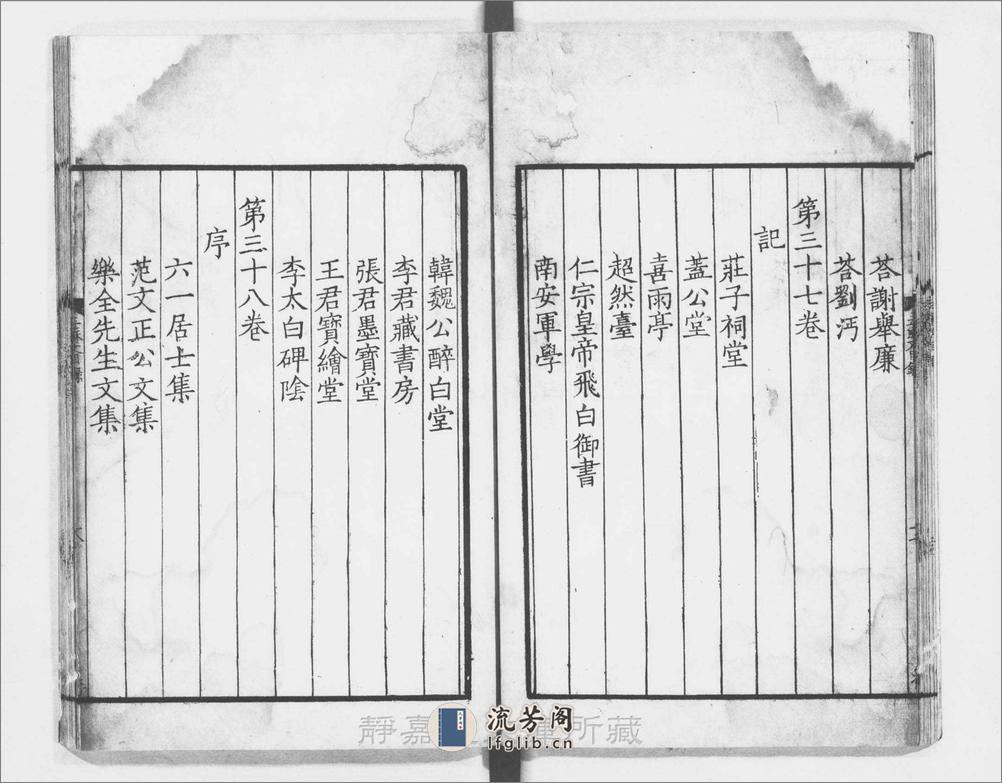 荅謝舉廉
荅劉沔
第三十七卷
記
莊子祠堂
蓋公堂
喜雨亭
超然臺
仁宗皇帝飛白御書
南安軍學
韓魏公醉白堂
李君藏書房
張君墨寶堂
王君寶繪堂
李太白碑陰
第三十八卷
序
六一居士集
范文正公文集
樂全先生文集
靜嘉
所藏
流芳阁
lfglib.cn